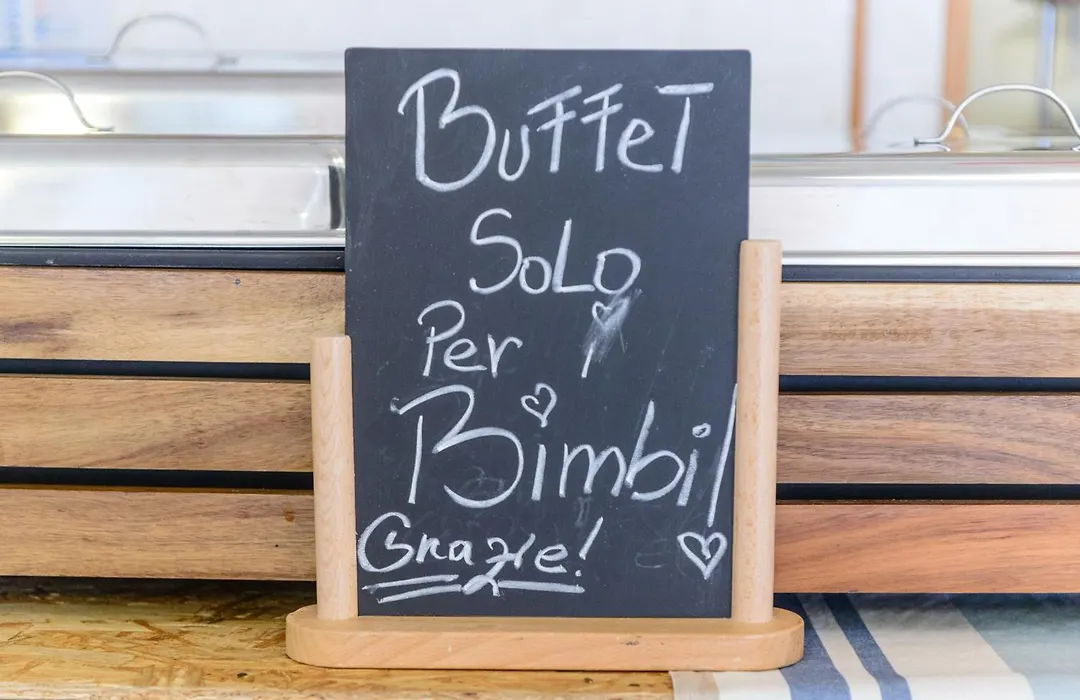 Buffet
Solo
Per i
Bimbi!
Grazie!